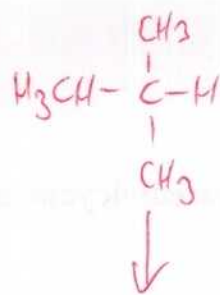 CH3
H3CH- C-H
CH3